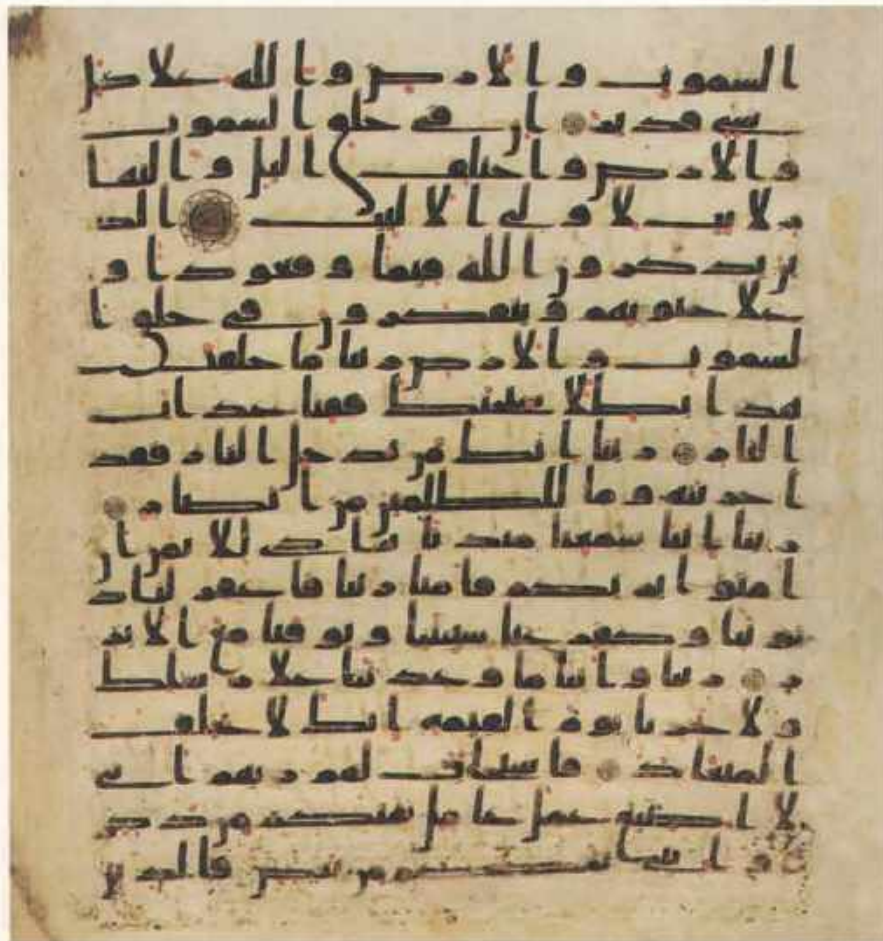 السموت والارض والله علا كل
شىء قدير ان فى خلق السموت
والارض واختلف اليل والنها
ر لايت لاولى الالبب الذ
ين يذكرون الله قيما وقعودا و
علا جنوبهم ويتفكرون فى خلق ا
لسموت والارض ربنا ما خلقت
هذا بطلا سبحنك فقنا عذاب
النار ربنا انك من تدخل النار فقد
اخزيته وما للظلمين من انصار
ربنا اننا سمعنا منديا ينادى للايمن ان
امنوا بربكم فامنا ربنا فاغفر لنا ذ
نوبنا وكفر عنا سيتنا وتوفنا مع الابر
ر ربنا واتنا ما وعدتنا علا رسلك
ولا تخزنا يوم القيمه انك لا تخلف
الميعاد فاستجاب لهم ربهم انى
لا اضيع عمل عامل منكم من ذكر
او انثى بعضكم من بعض فالذي